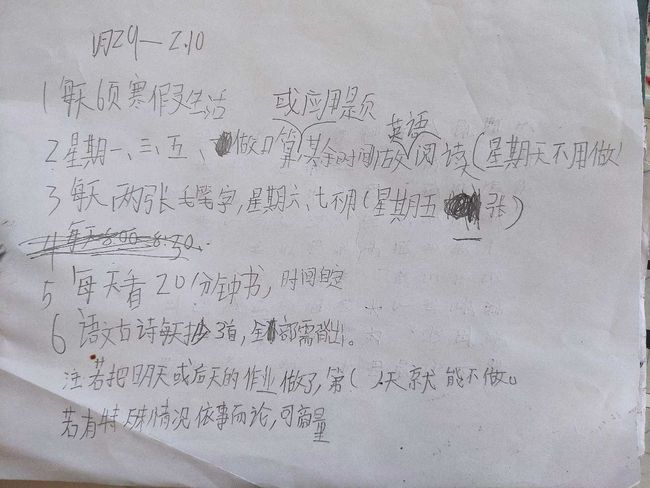 1月29—2.10
1 每天6页寒假生活 或应用题
2 星期一、三、五、做口算(其余时间做英语阅读(星期天不用做)
3 每天两张毛笔字,星期六、七不用(星期五 张)
4 每天8:00-8:30.
5 每天看20分钟书,时间自定
6 语文古诗每天抄3首,全部需背出。
注若把明天或后天的作业做了,第( )天就能不做。
若有特殊情况依事而论,可商量